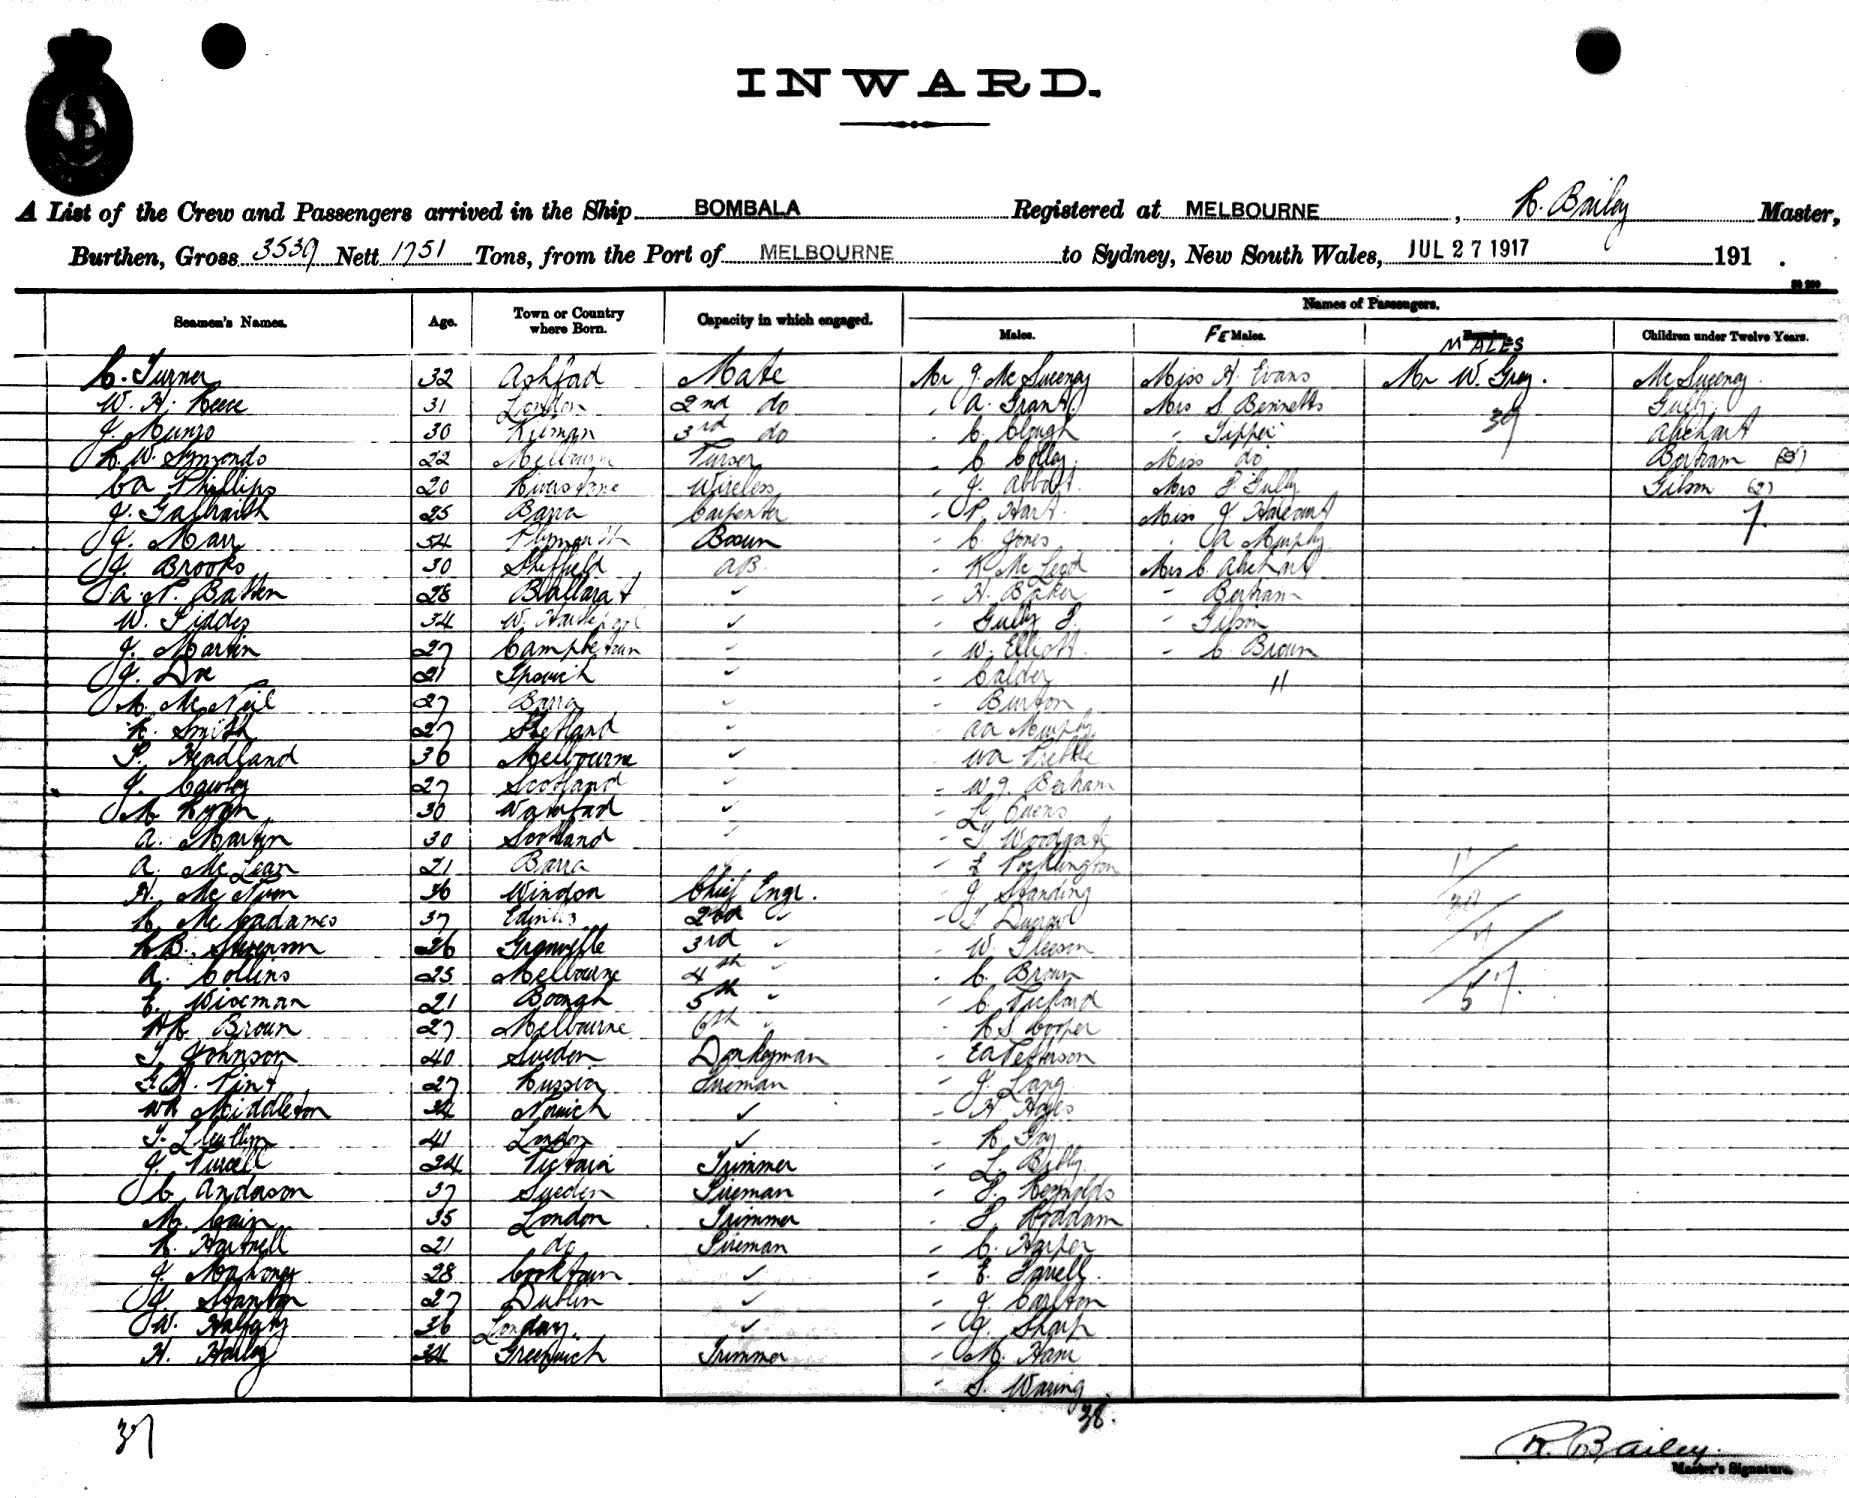 INWARD.
A List of the Crew and Passengers arrived in the Ship BOMBALA Registered at MELBOURNE, R. Bailey Master,
Burthen, Gross 3539 Nett 1751 Tons, from the Port of MELBOURNE to Sydney, New South Wales, JUL 27 1917 191 .
Names of Passengers.
Seamen's Names. Age. Town or Country where Born. Capacity in which engaged. Males. FEMales. MALES Children under Twelve Years.
Turner 32 Ashford Mate Mr J. McSweeney Miss H. Evans Mr W. Gray. McSweeney
W. H. Reece 31 London 2nd do A. Grant. Mrs S. Bennetts 39 Gully
J. Munro 30 3rd do C. Clough Tipper Abehart
R. W. Symonds 22 Melbourne Purser C. Colley Miss do Bertram
Phillips 20 Riverstone Wireless J. Abbott. Mrs F. Gully Gibson (2)
J. Galbraith 25 Barra Carpenter P. Hart. Miss J Harcourt 7.
J. Marr 54 Plymouth Bosun C. Jones A Murphy
J. Brooks 30 Sheffield AB. McLeod Mrs C. Abehart
A. P. Batten 28 Ballarat H. Baker Bertram
W. 34 W. Hartlepool Gully F. Gibson
J. Martin 27 Campbeltown W. Elliott. C. Brown
J. Doe 21 Ipswich Calder 11
McNeil 27 Barra Burton
R. Smith 27 Shetland AA Murphy
Headland 36 Melbourne WA
J. Cawley 27 Scotland W J. Bertram
M Ryan 30 Watford
A. Martin 30 Scotland Woodgate
A. McLean 21 Barra Pocklington
H. 36 Windsor Chief Engr. J. Standing
R. McCadames 37 Edinb. 2nd
R. B. Stevenson 26 Granville 3rd W. Gleeson
A. Collins 25 Melbourne 4th C. Brown 57.
E. Wiseman 21 5th C. Pickard
HR Brown 27 Melbourne 6th R S Cooper
T. Johnson 40 Sweden Donkeyman EA Petterson
Pint 27 Russia Fireman J. Lang
WR Middleton 34 Norwich H Hayes
T. Llewllyn 41 London R
J. Purcell 24 Victoria Trimmer L.
C Anderson 37 Sweden Fireman F. Reynolds
M. Cain 35 London Trimmer F. Roddam
R. Hartnell 21 do Fireman C. Harper
J. Mahoney 28 Cooktown E. Farrell.
J. Stanton 27 Dublin J. Carlton
W. 36 J. Sharp
H. Harley 34 Greenwich Trimmer M. Ham
S. Waring
37 38.
R. Bailey.
Master's Signature.